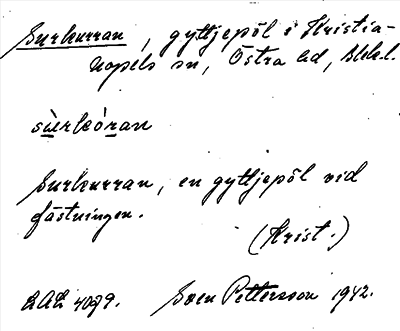 Surkurran, gyttjepöl i Kristia-
nopels sn, Östra hd, Blek.l.
sùrkòran
Surkurran, en gyttjepöl vid
fästningen.
(Krist.)
LAL 4079. Sven Pettersson 1942.